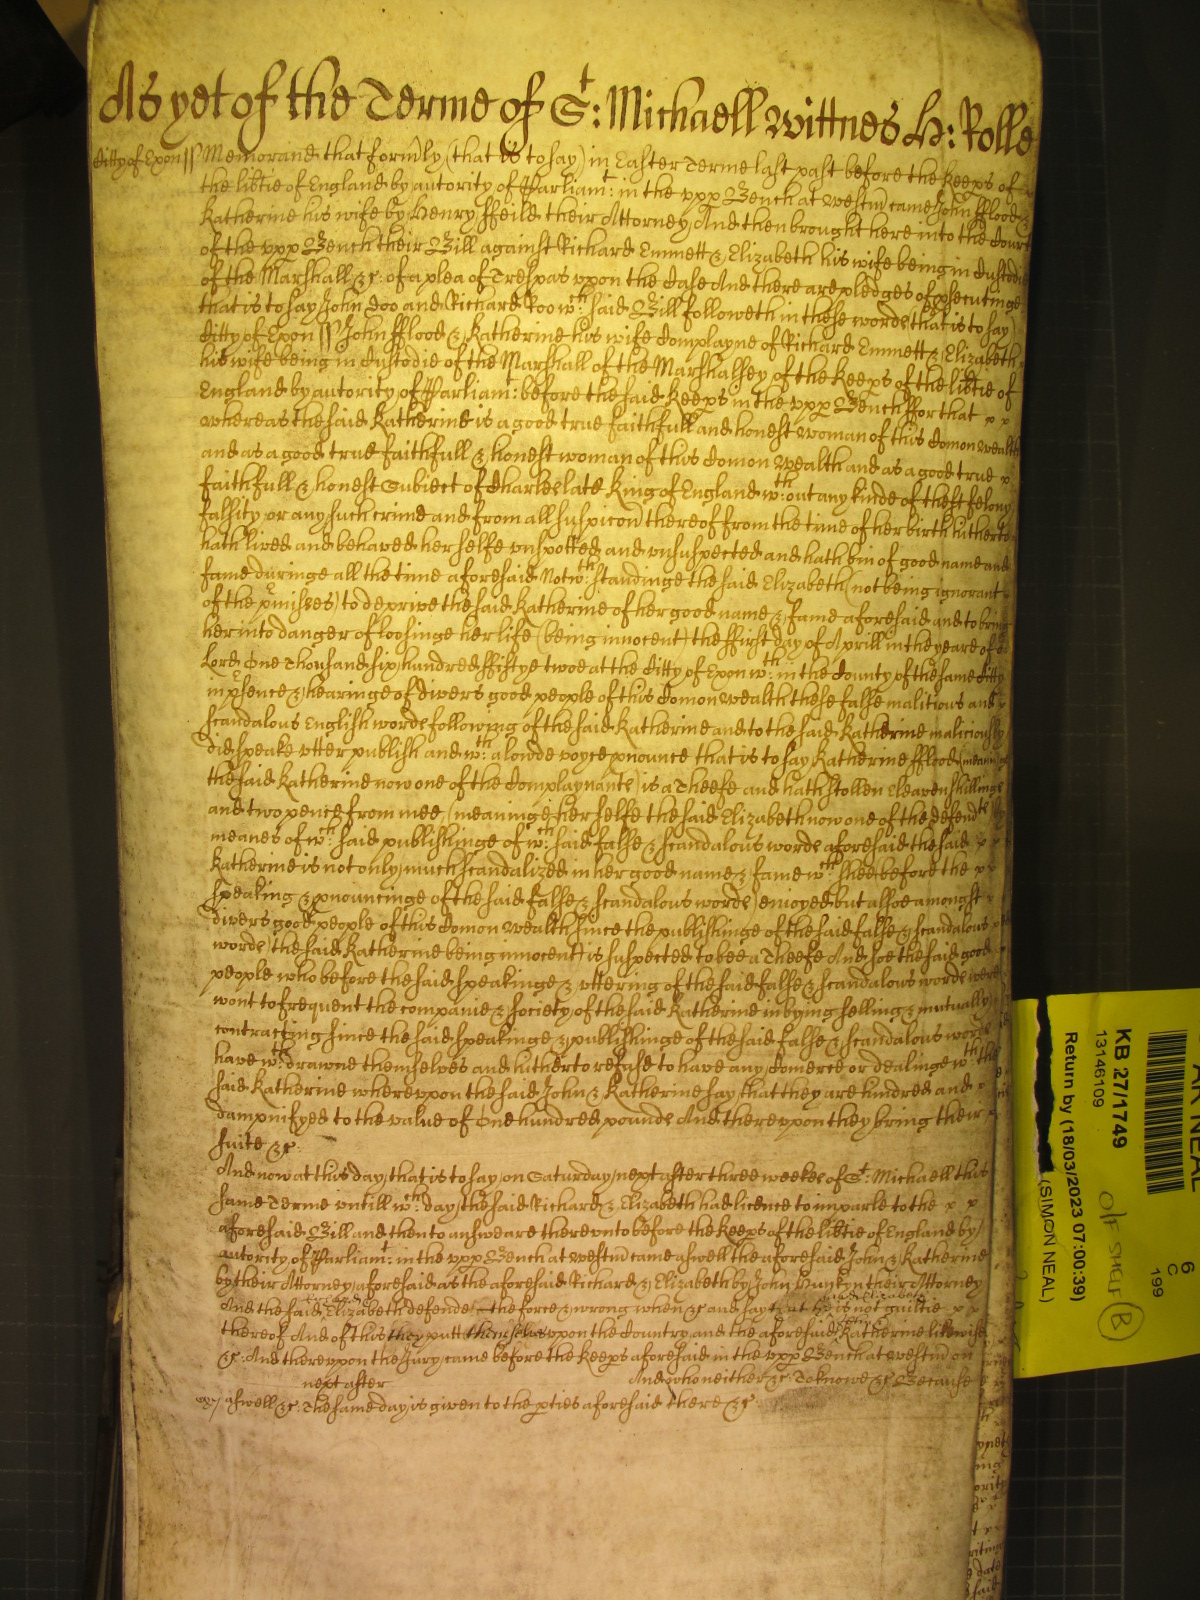 As yet of the Terme of St: Michaell Wittnes H: Rolle
Citty of Exon ss Memorand that formly (that is to say) in Easter Terme last past before the Keeps of
the libtie of England by autority of Parliamt: in the vpp Bench at Westm came John fflood &
Katherine his wife by Henry ffeild their Attorney And then brought here into the Court
of the vpp Bench their Bill against Richard Emmett & Elizabeth his wife being in Custodie
of the Marshall &c: of a plea of Trespas vpon the Case And there are pledges of psecutinge
that is to say John Doo and Richard Roo wch: said Bill followeth in these words that is to say)
Citty of Exon ss John fflood & Katherine his wife Complayne of Richard Emmett & Elizabeth
his wife being in Custodie of the Marshall of the Marshalsey of the Keeps of the libtie of
England by autority of Parliamt: before the said Keeps in the vpp Bench ffor that x x
whereas the said Katherine is a good true faithfull and honest woman of this Comon wealth
and as a good true faithfull & honest woman of this Comon wealth and as a good true x
faithfull & honest Subiect of Charles late King of England wth: out any kinde of theft felony
falsity or any such crime and from all suspicon thereof from the time of her birth hitherto
hath lived and behaved her selfe vnspotted and vnsuspected and hath bin of good name and
fame duringe all the time aforesaid Notwth: standinge the said Elizabeth (not being ignorant
of the pmisses) to deprive the said Katherine of her good name & fame aforesaid and to bring
her into danger of loosinge her life (being innocent) the ffirst day of Aprill in the yeare of or
Lord One Thousand six hundred ffiftye twoe at the Citty of Exon wth: in the County of the same Citty
in psence & hearinge of divers good people of this Comon wealth these false malitious and
scandalous English words following of the said Katherine and to the said Katherine maliciously
did speake vtter publish and wth: a lowde voyce pnounce that is to say Katherine fflood (meaning
the said Katherine now one of the Complaynants) is a Theefe and hath stollen Eleaven shillings
and two pence from mee (meaninge her selfe the said Elizabeth now one of the defendts) by
meanes of wch: said publishinge of wch: said false & scandalous words aforesaid the said x x
Katherine is not only much scandalized in her good name & fame wch: shee before the x x
speaking & pnouncinge of the said false & scandalous words) enioyed but alsoe amongst
divers good people of this Comon wealth since the publishinge of the said false & scandalous
words) the said Katherine being innocent) is suspected to bee a Theefe And soe the said good
people who before the said speakinge & vttering of the said false & scandalous words were
wont to frequent the companie & society of the said Katherine in bying selling & mutually
contracting since the said speakinge & publishinge of the said false & scandalous words
have wth: drawne themselves and hitherto refuse to have any Comerce or dealinge wth: the
said Katherine wherevpon the said John & Katherine say that they are hindred and x
dampnifyed to the value of One hundred pounds And therevpon they bring their
suite &c
And now at this day that is to say on Saturday next after three weekes of St: Michaell this
same Terme vntill wch: day the said Richard & Elizabeth had licence to imparle to the x x
aforesaid Bill and then to answeare therevnto before the Keeps of the libtie of England by
autority of Parliamt: in the vpp Bench at Westm came aswell the aforesaid John & Katherine
by their Attorney aforesaid as the aforesaid Richard & Elizabeth by John their Attorney
And the said Elizabeth defende the force & wrong when &c and say that is not guiltie x x
thereof And of this they putt themselves vpon the Country and the aforesaid Katherine likewise
&c: And therevpon the Jury came before the Keeps aforesaid in the vpp Bench at Westm on
next after And who neither &c: To knowe &c Because
aswell &c: The same day is given to the pties aforesaid there &c:
KB 27/1749
13146109
Return by (18/03/2023 07:00:39)
(SIMON NEAL)
6
C
199
B